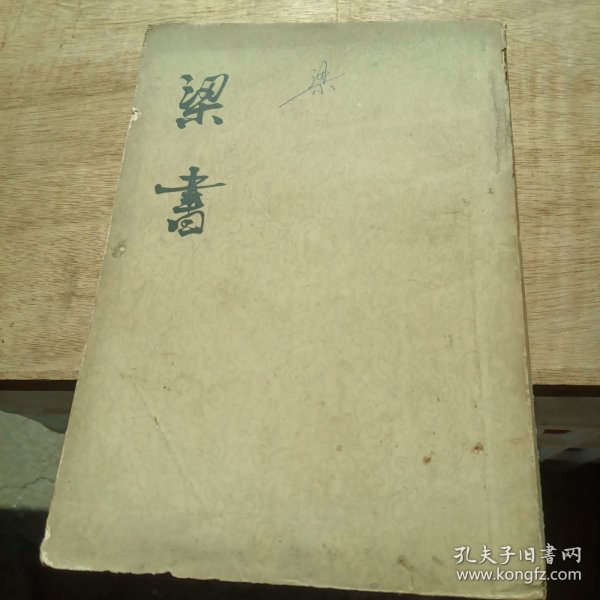 梁書
梁
孔夫子旧書网
www.kongfz.com